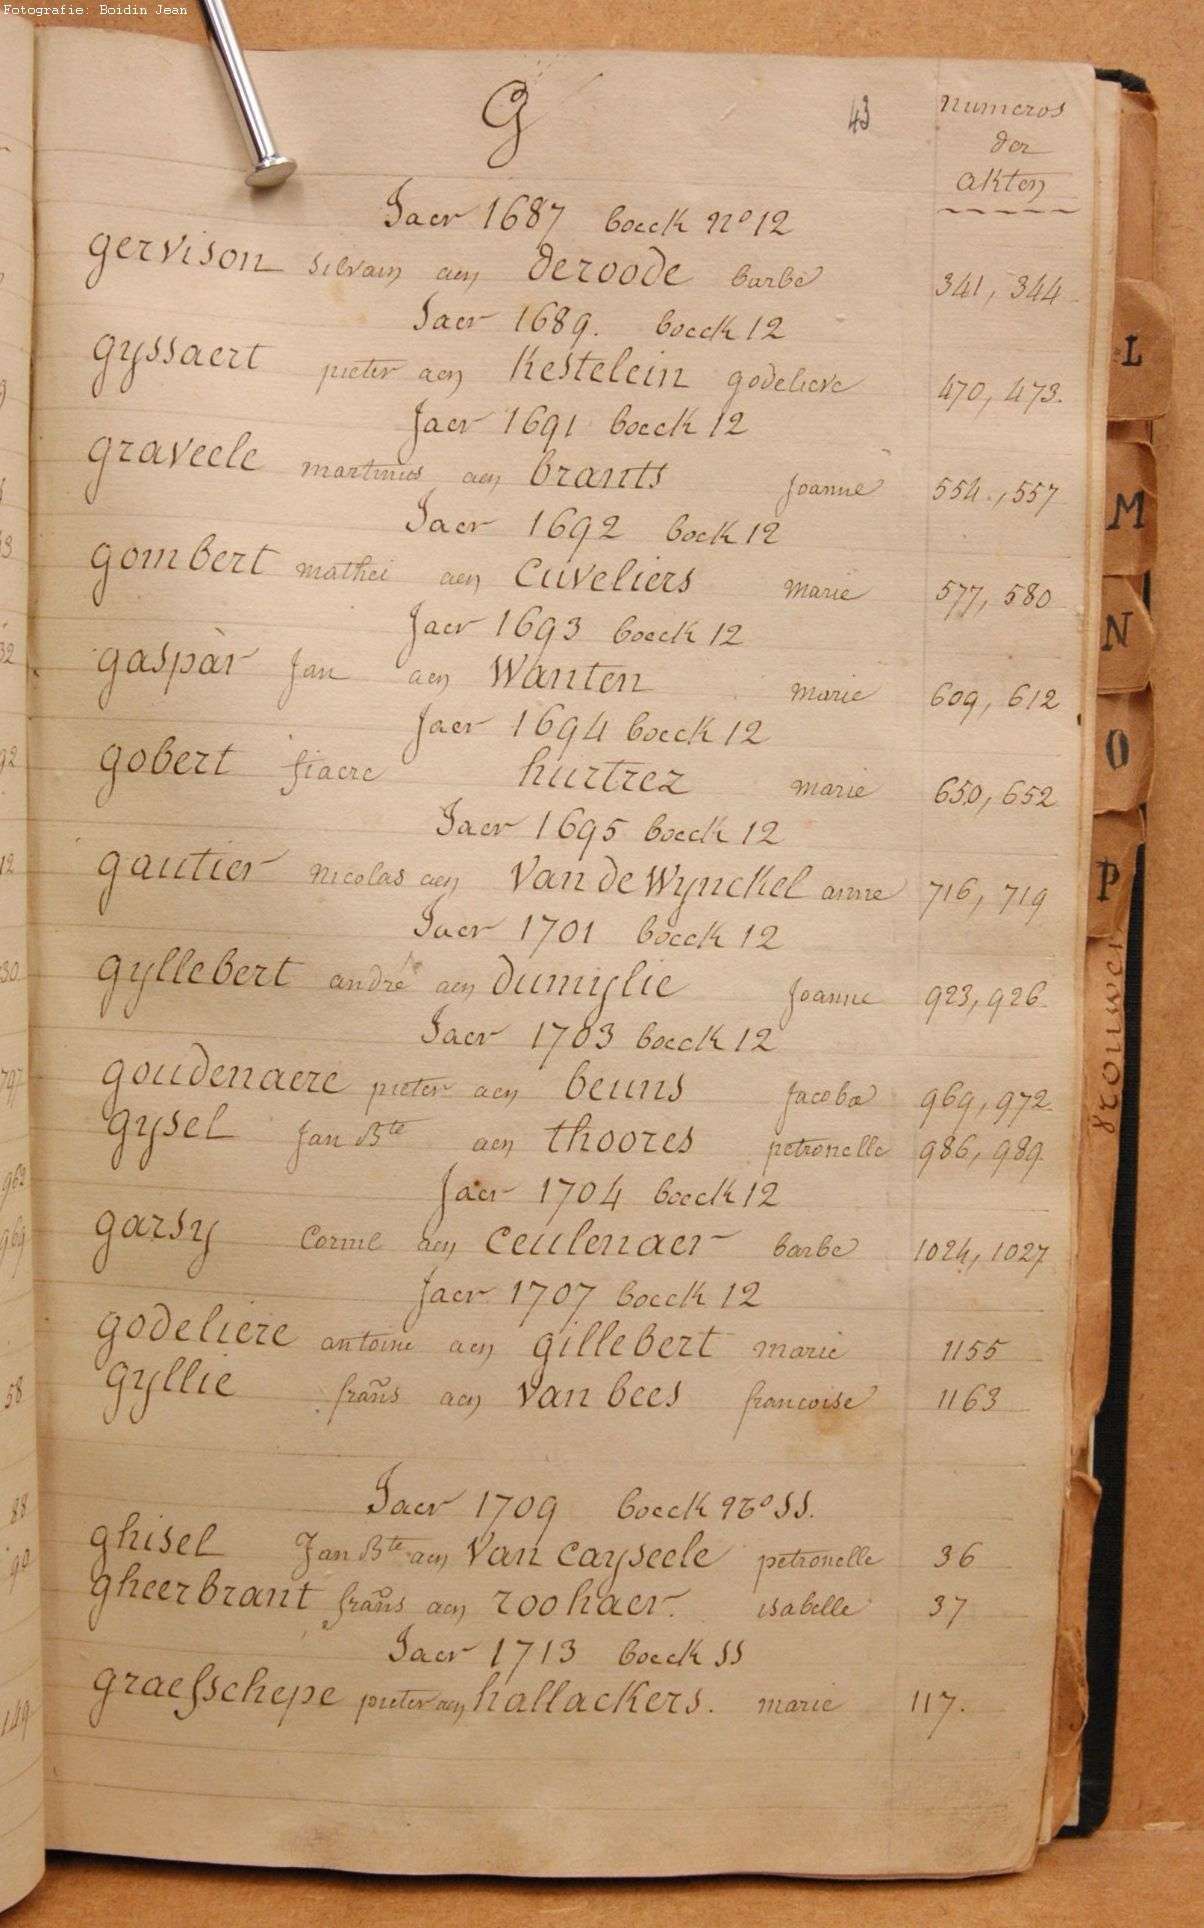 Fotografie: Boidin Jean
G 43 numeros
der
akten
Jaer 1687 boeck nº 12
gervison silvain aen deroode barbe 341, 344
Jaer 1689. boeck 12
gyssaert pieter aen kestelein godelieve 470, 473.
Jaer 1691 boeck 12
graveele martinus aen brants Joanne 554., 557
Jaer 1692 boek 12
gombert mathei aen cuveliers marie 577, 580
Jaer 1693 boeck 12
gaspàr Jan aen Wanten marie 609, 612
Jaer 1694 boeck 12
gobert fiacre hurtrez marie 650, 652
Jaer 1695 boeck 12
gautier nicolas aen Van de Wynckel anne 716, 719
Jaer 1701 boeck 12
gyllebert andré aen dumylie Joanne 923, 926
Jaer 1703 boeck 12
goudenaere pieter aen beuns Jacoba 969, 972
gysel Jan Bte aen thoores petronelle 986, 989
Jaer 1704 boeck 12
garsy Corniel aen ceulenaer barbe 1024, 1027
Jaer 1707 boeck 12
godeliere antoine aen gillebert marie 1155
gyllie frans aen van bees francoise 1163
Jaer 1709 boeck nº SS.
ghisel Jan Bte aen Van cayseele petronelle 36
gheerbrant frans aen roohaer. isabelle 37
Jaer 1713 boeck SS
graefschepe pieter aen hallackers. marie 117.
L
M
N
O
P
vrouwen